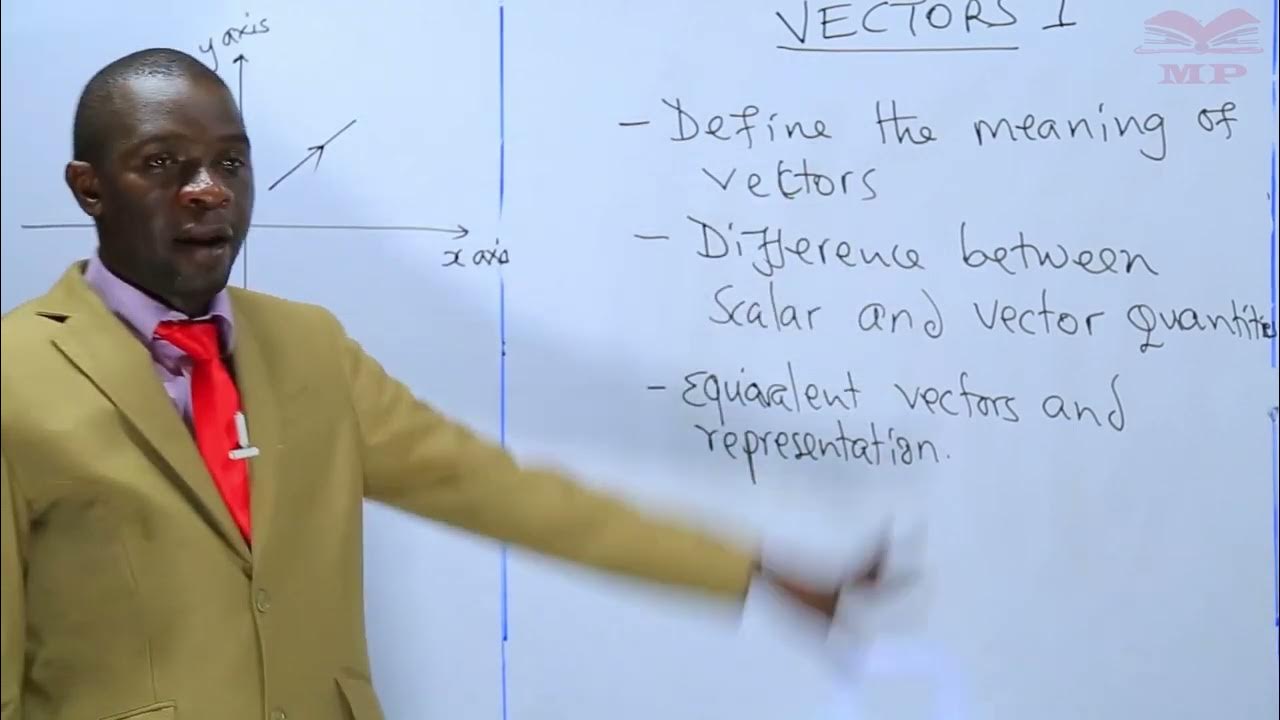 y axis
x axis
VECTORS I
- Define the meaning of
vectors
- Difference between
Scalar and vector Quantitie
- Equivalent vectors and
representation.
MP